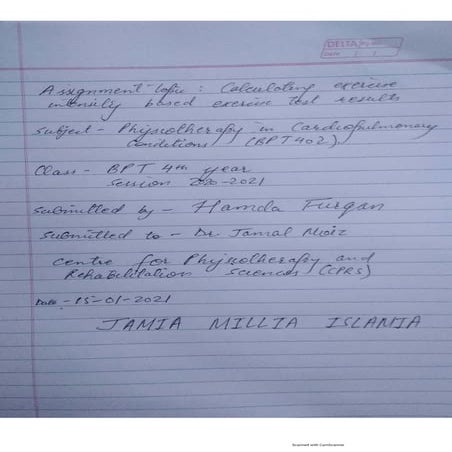 DELTA
Date
Assignment topic : Calculating exercise
intensity based exercise test results
Subject - Physiotherapy in Cardiopulmonary
Conditions (BPT 402)
Class - BPT 4th year
session 2020-2021
Submitted by - Hamda Furqan
Submitted to - Dr. Jamal Moiz
Centre for Physiotherapy and
Rehabilitation Sciences (CPRS)
Date - 15-01-2021
JAMIA MILLIA ISLAMIA
Scanned with CamScanner